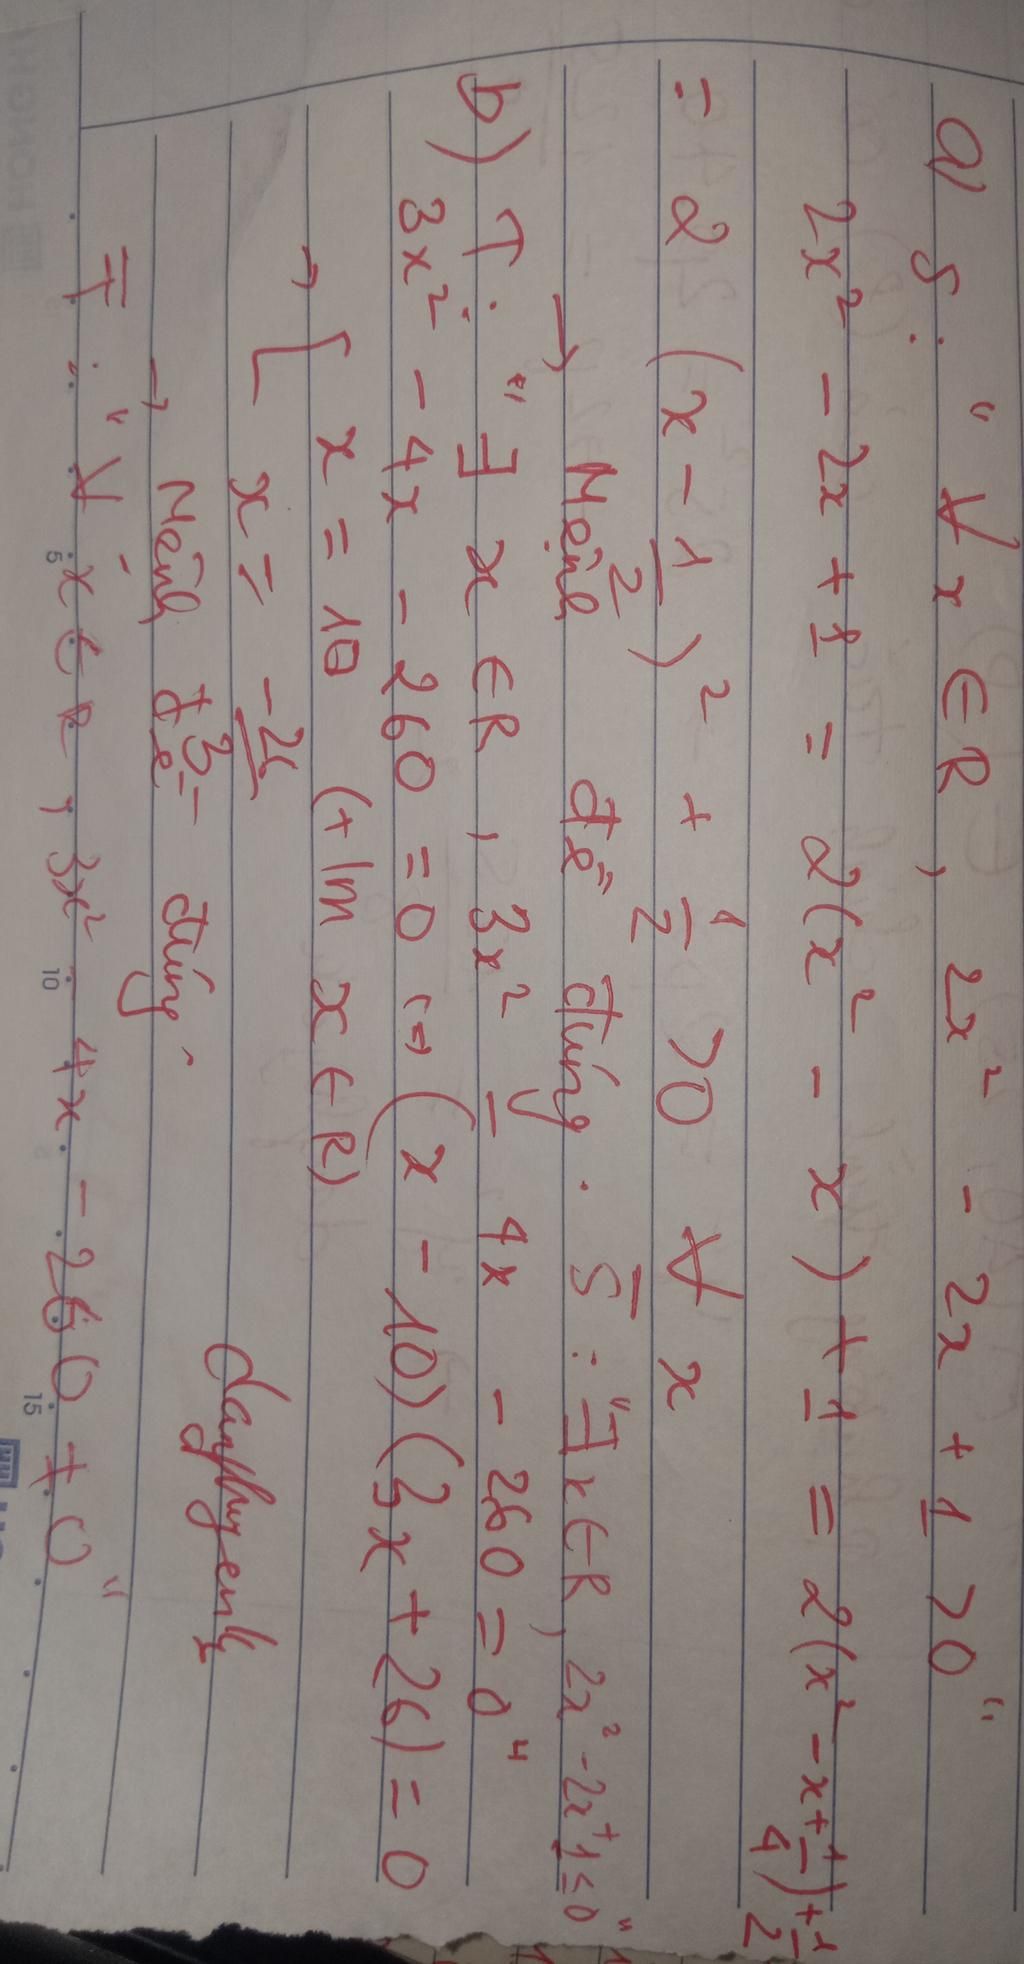 a) S: "∀x ∈ R, 2x² - 2x + 1 > 0"
2x² - 2x + 1 = 2(x² - x) + 1 = 2(x² - x + 1/4) + 1/2
= 2(x - 1/2)² + 1/2 > 0 ∀ x
→ Mệnh đề đúng. S̅: "∃x ∈ R, 2x² - 2x + 1 ≤ 0"
b) T: "∃ x ∈ R, 3x² - 4x - 260 = 0"
3x² - 4x - 260 = 0 (=) (x - 10)(3x + 26) = 0
→ [ x = 10 (+lm x ∈ R)
x = -26/3
→ Mệnh đề đúng.
T̅: "∀ x ∈ R, 3x² - 4x - 260 ≠ 0"
5 10 15